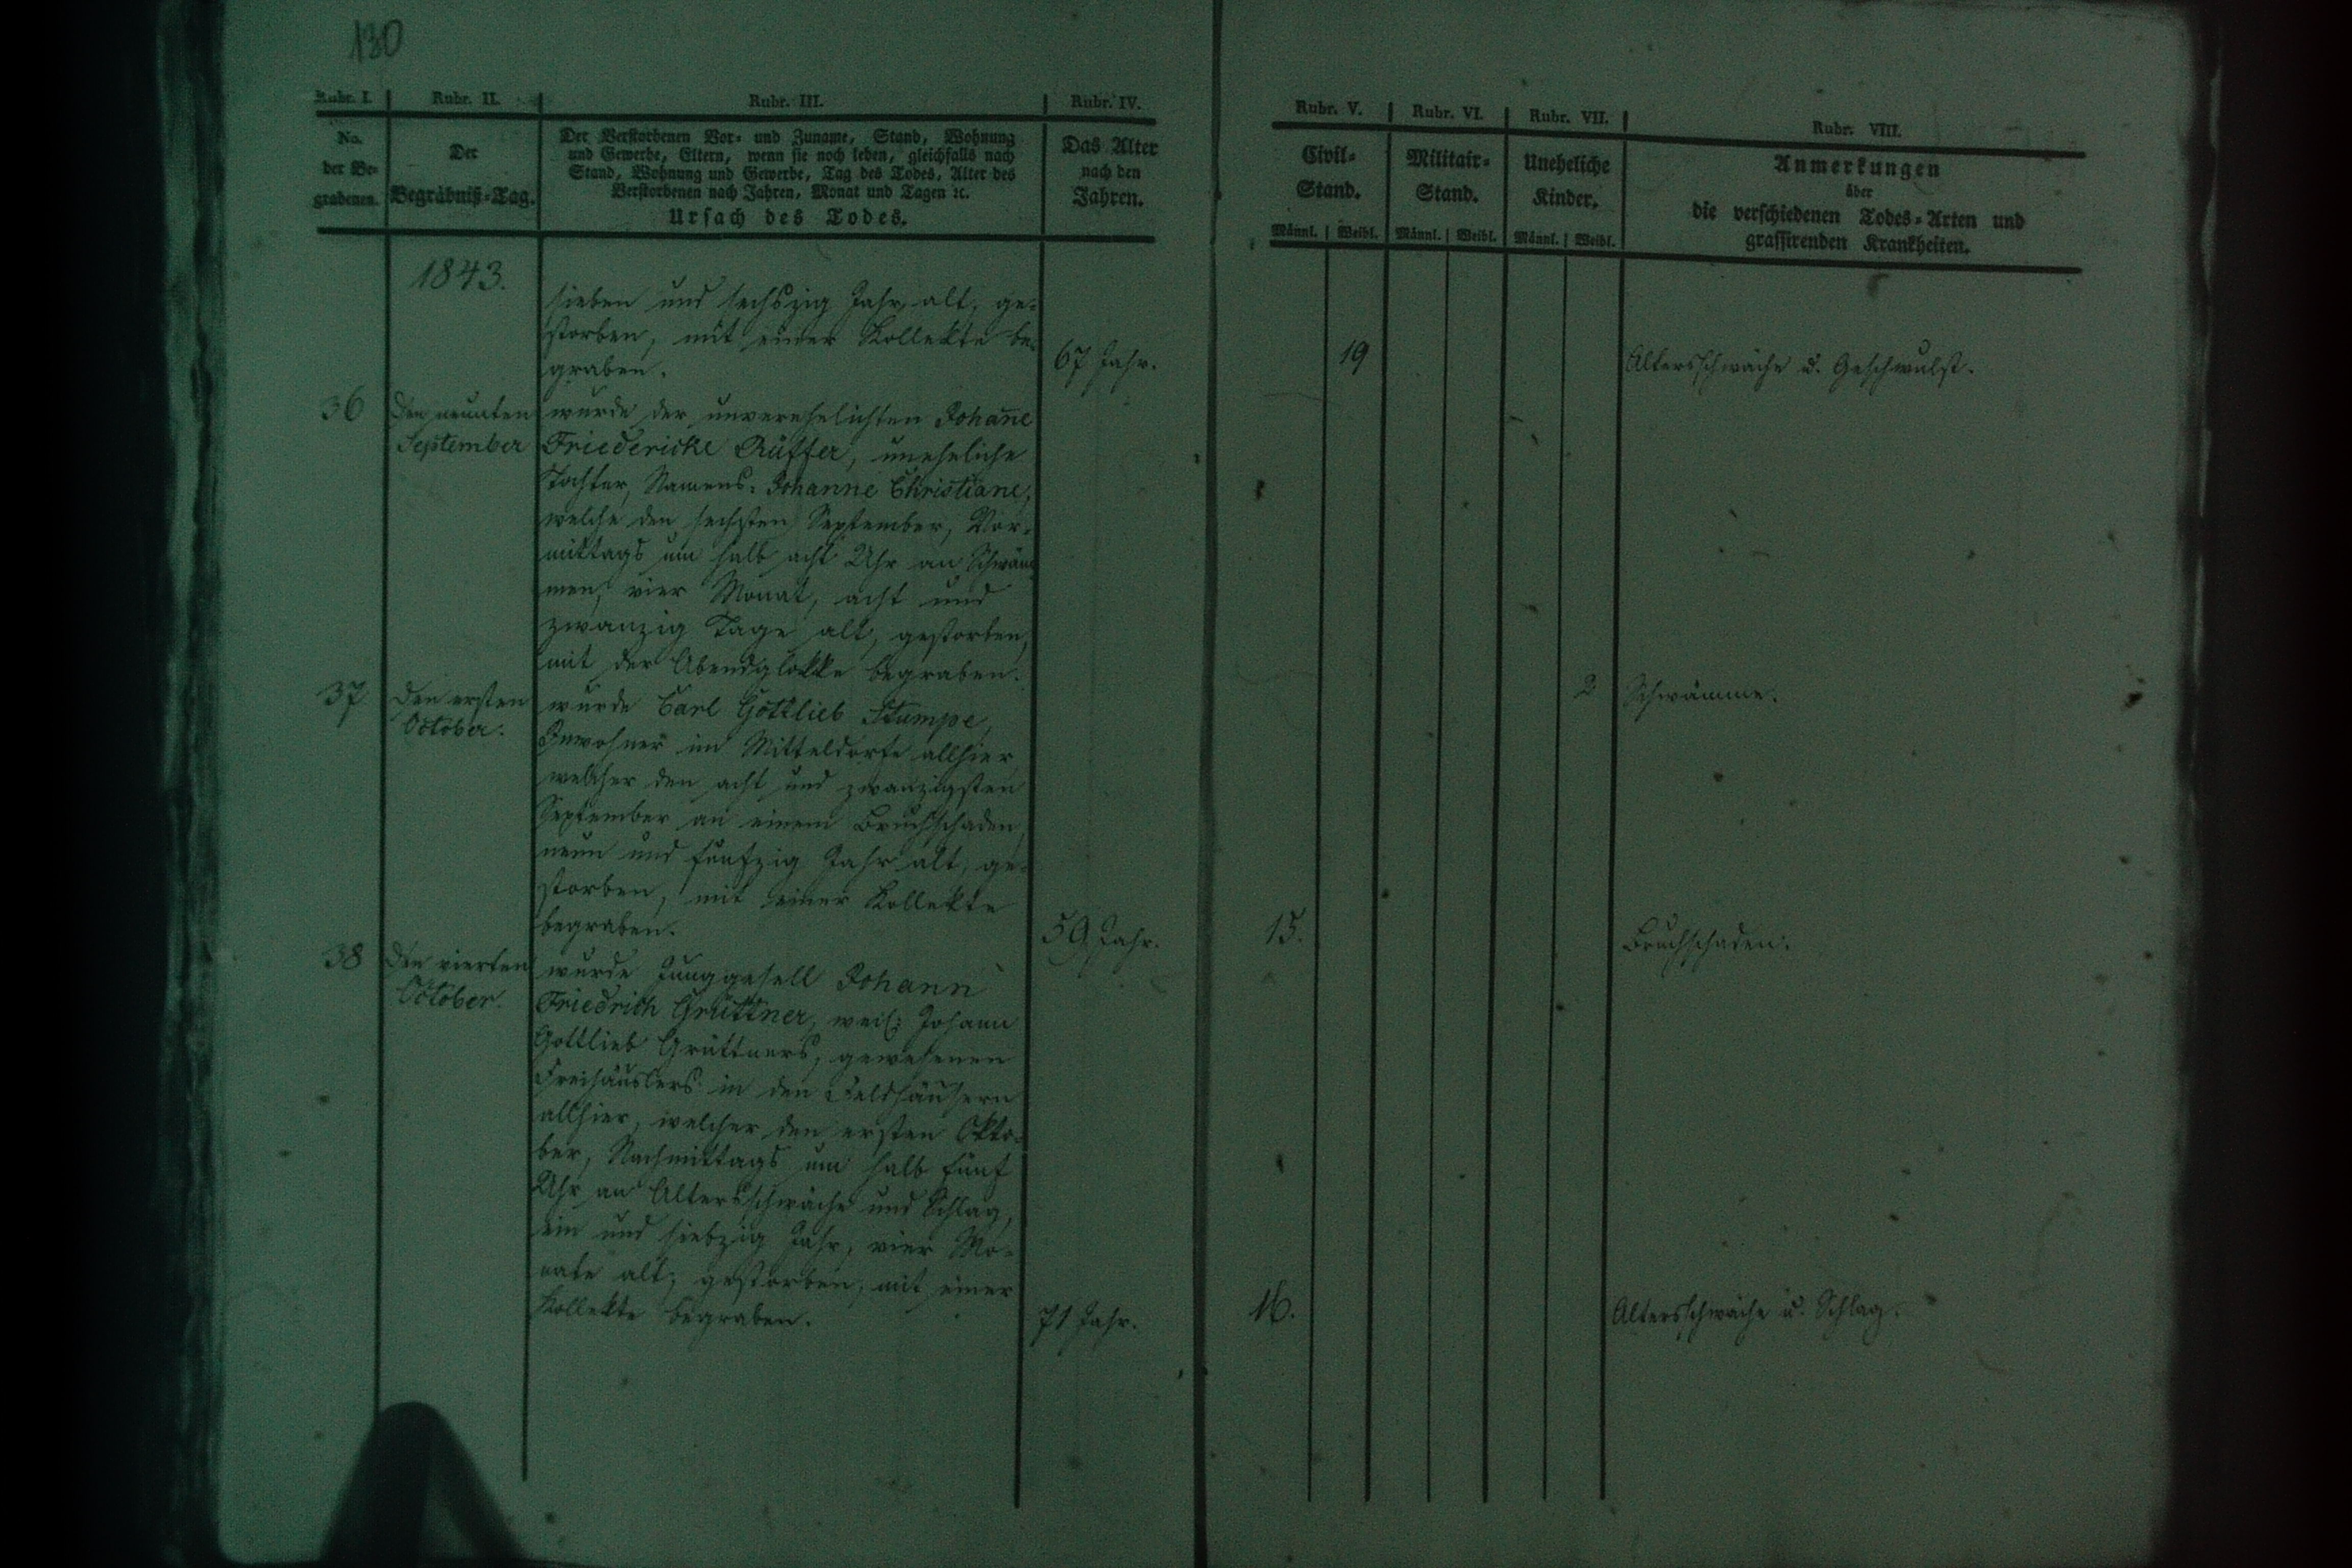 130
Rubr. I.
No.
der Be-
grabenen.
Rubr. II.
Der
Begräbniß-Tag.
Rubr. III.
Der Verstorbenen Vor- und Zuname, Stand, Wohnung
und Gewerbe, Eltern, wenn sie noch leben, gleichfalls nach
Stand, Wohnung und Gewerbe, Tag des Todes, Alter des
Verstorbenen nach Jahren, Monat und Tagen ꝛc.
Ursach des Todes.
Rubr. IV.
Das Alter
nach den
Jahren.
Rubr. V.
Civil-
Stand.
Männl. Weibl.
Rubr. VI.
Militair-
Stand.
Männl. Weibl.
Rubr. VII.
Uneheliche
Kinder.
Männl. Weibl.
Rubr. VIII.
Anmerkungen
über
die verschiedenen Todes-Arten und
grassirenden Krankheiten.
1843.
sieben und sechszig Jahr alt, ge-
storben, mit einer Kollekte be-
graben.
67 Jahr.
19
Altersschwäche u. Geschwulst.
36
Den neunten
September
wurde der unverehelichten Johan̄e
Friedericke Rüffer, uneheliche
Tochter, Namens: Johanne Christiane,
welche den sechsten September, Vor-
mittags um halb acht Uhr an Schwäm-
men, vier Monat, acht und
zwanzig Tage alt, gestorben,
mit der Abendglokke begraben.
2
Schwämme.
37
Den ersten
October.
wurde Carl Gottlieb Stumpe,
Inwohner im Mitteldorfe allhier,
welcher den acht und zwanzigsten
September an einem Bruchschaden,
neun und fünfzig Jahr alt, ge-
storben, mit einer Kollekte
begraben.
59 Jahr.
15.
Bruchschaden.
38
Den vierten
October.
wurde Junggesell Johann
Friedrich Grüttner, weil: Johann
Gottlieb Grüttners, gewesenen
Freihäuslers in den Feldhäusern
allhier, welcher den ersten Okto-
ber, Nachmittags um halb fünf
Uhr an Altersschwäche und Schlag,
ein und siebzig Jahr, vier Mo-
nate alt, gestorben, mit einer
Kollekte begraben.
71 Jahr.
16.
Altersschwäche u. Schlag.